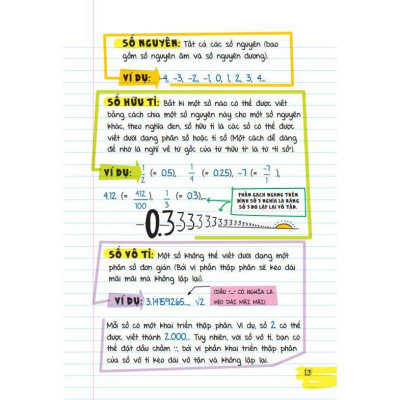 SỐ NGUYÊN: Tất cả các số nguyên (bao
gồm số nguyên âm và số nguyên dương).
VÍ DỤ: -4, -3, -2, -1, 0, 1, 2, 3, 4...
SỐ HỮU TỈ: Bất kì một số nào có thể được viết
bằng cách chia một số nguyên này cho một số nguyên
khác, theo nghĩa đen, số hữu tỉ là các số có thể được
viết dưới dạng phân số hoặc tỉ số (Một cách dễ dàng
để nhớ là nghĩ về từ gốc của từ "hữu tỉ" là từ "tỉ số").
VÍ DỤ: 1/2 (= 0.5), 1/4 (= 0.25), -7 (= -7/1),
4.12 (= 412/100), 1/3 (= 0.3)...
PHẦN GẠCH NGANG TRÊN
ĐỈNH SỐ 3 NGHĨA LÀ RẰNG
SỐ 3 ĐÓ LẶP LẠI VÔ TẬN.
0.33333
SỐ VÔ TỈ: Một số không thể viết dưới dạng một
phân số đơn giản (Bởi vì phần thập phân sẽ kéo dài
mãi mãi mà không lặp lại).
VÍ DỤ: 3.14159265..., √2
(DẤU "..." CÓ NGHĨA LÀ
KÉO DÀI MÃI MÃI)
Mỗi số có một khai triển thập phân. Ví dụ, số 2 có thể
được viết thành 2,000... Tuy nhiên, với số vô tỉ, bạn có
thể đặt dấu chấm "...", bởi vì phần khai triển thập phân
của số vô tỉ kéo dài vô tận và không lặp lại.